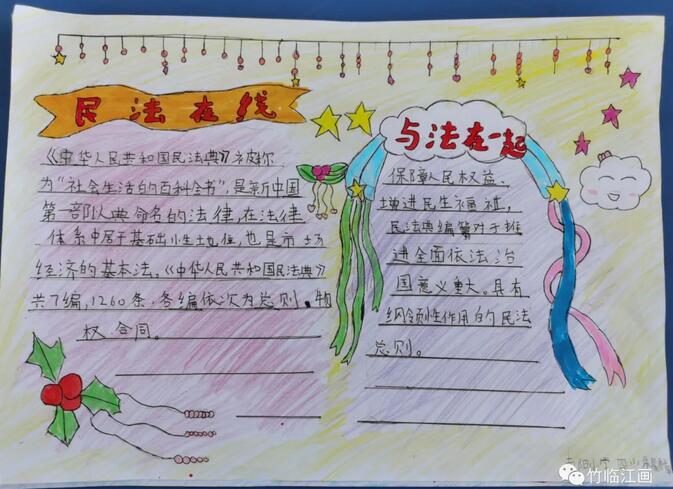 民法在线
与法在一起
《中华人民共和国民法典》被称
为“社会生活的百科全书”，是新中国
第一部以典命名的法律，在法律
体系中居于基础性地位，也是市场
经济的基本法。《中华人民共和国民法典》
共7编，1260条，各编依次为总则、物
权、合同。
保障人民权益、
增进民生福祉，
民法典编纂对于推
进全面依法治
国意义重大。具有
纲领性作用的民法
总则。
小学
竹临江画